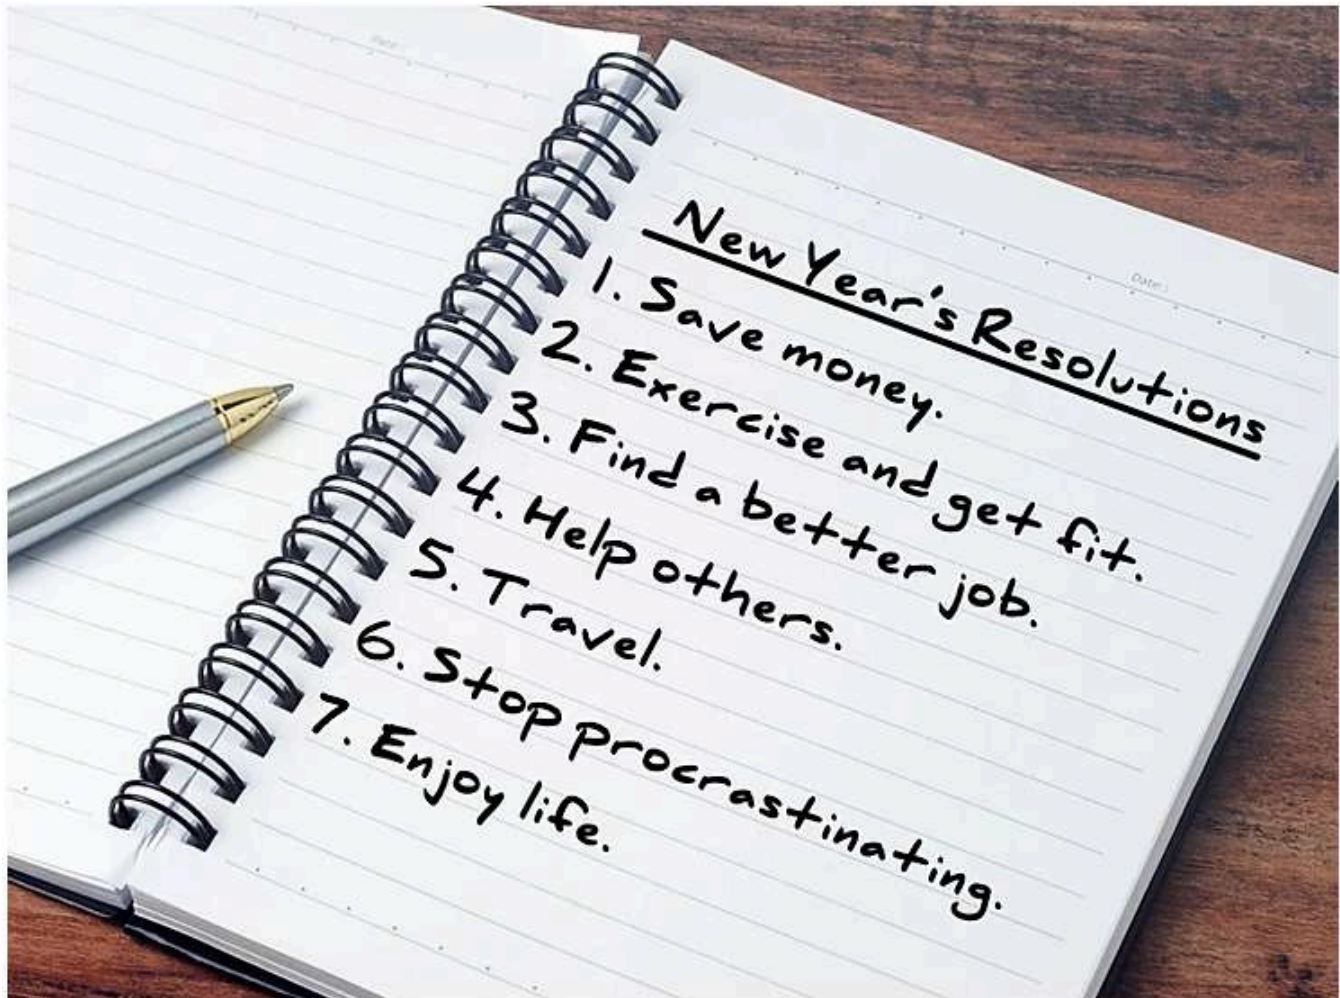 Date:
Date:
New Year's Resolutions
1. Save money.
2. Exercise and get fit.
3. Find a better job.
4. Help others.
5. Travel.
6. Stop procrastinating.
7. Enjoy life.